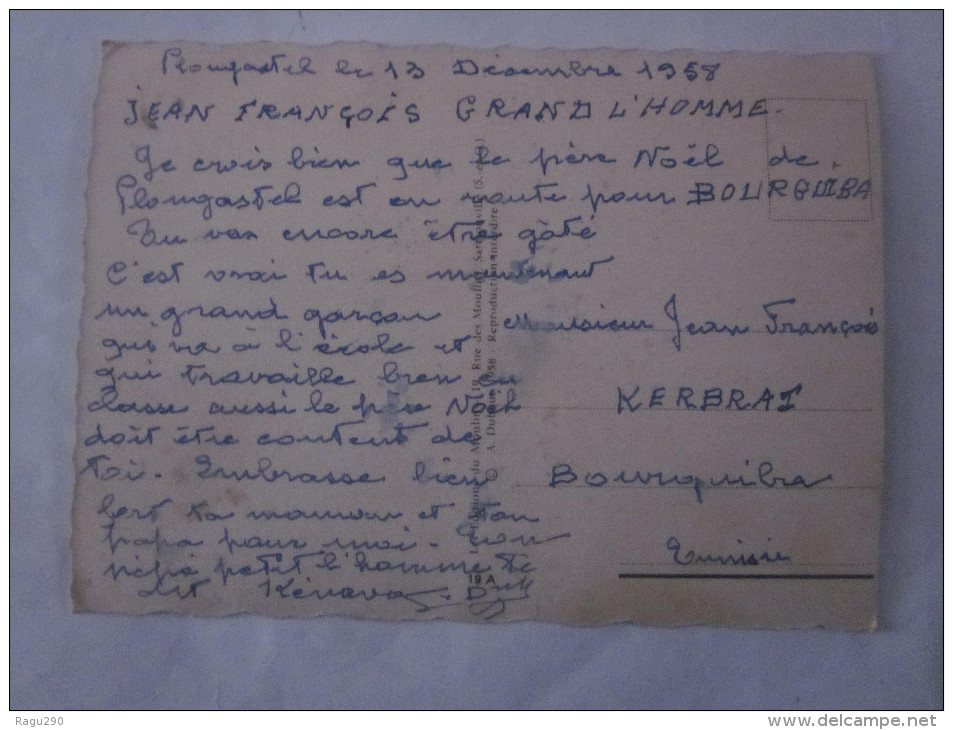 Plougastel le 13 Décembre 1958
JEAN FRANÇOIS GRAND L'HOMME.
Je crois bien que le père Noël de
Plougastel est en route pour BOURGUIBA
Tu vas encore être gâté
C'est vrai tu es maintenant
un grand garçon
qui va à l'école et
qui travaille bien en
classe aussi le père Noël
doit être content de
toi. Embrasse bien
fort ta maman et ton
papa pour moi. Ton
pépé petit l'homme te
dit Kénavo.
Monsieur Jean François
KERBRAT
Bourguiba
Tunisie
Editions du Moulin, 19, Rue des Mouflets, Sartrouville (S.-et-O.)
© A. Dubout 1958 - Reproduction interdite
19 A
Ragu290
http://www.delcampe.net